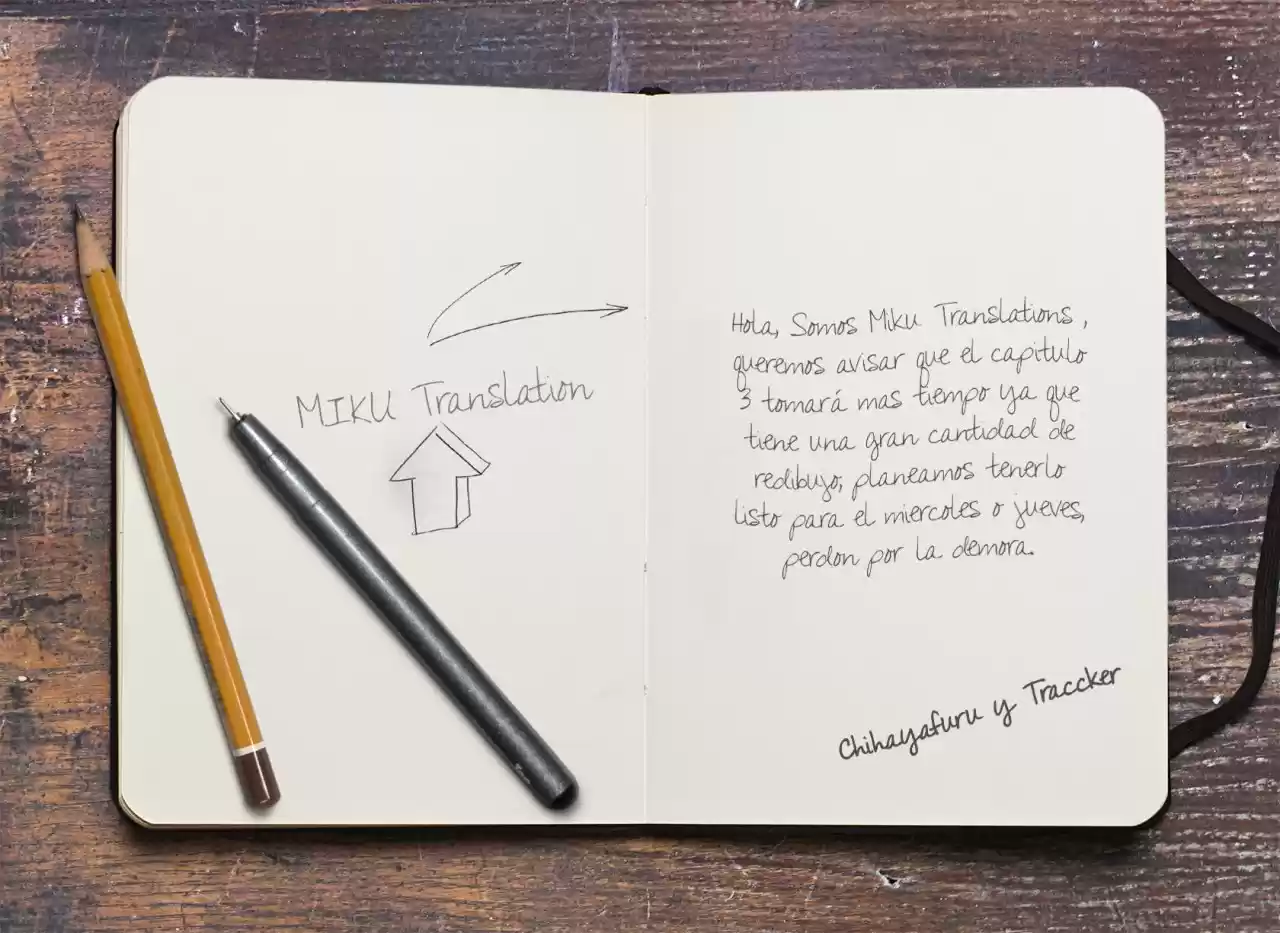 MIKU Translation
Hola, Somos Miku Translations,
queremos avisar que el capitulo
3 tomará mas tiempo ya que
tiene una gran cantidad de
redibujo, planeamos tenerlo
listo para el miercoles o jueves,
perdon por la demora.
Chihayafuru y Traccker